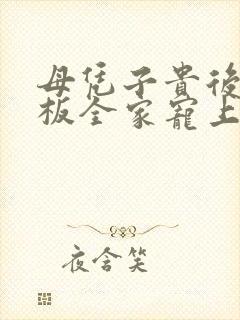 母凭子貴後
板全家寵上
夜含笑